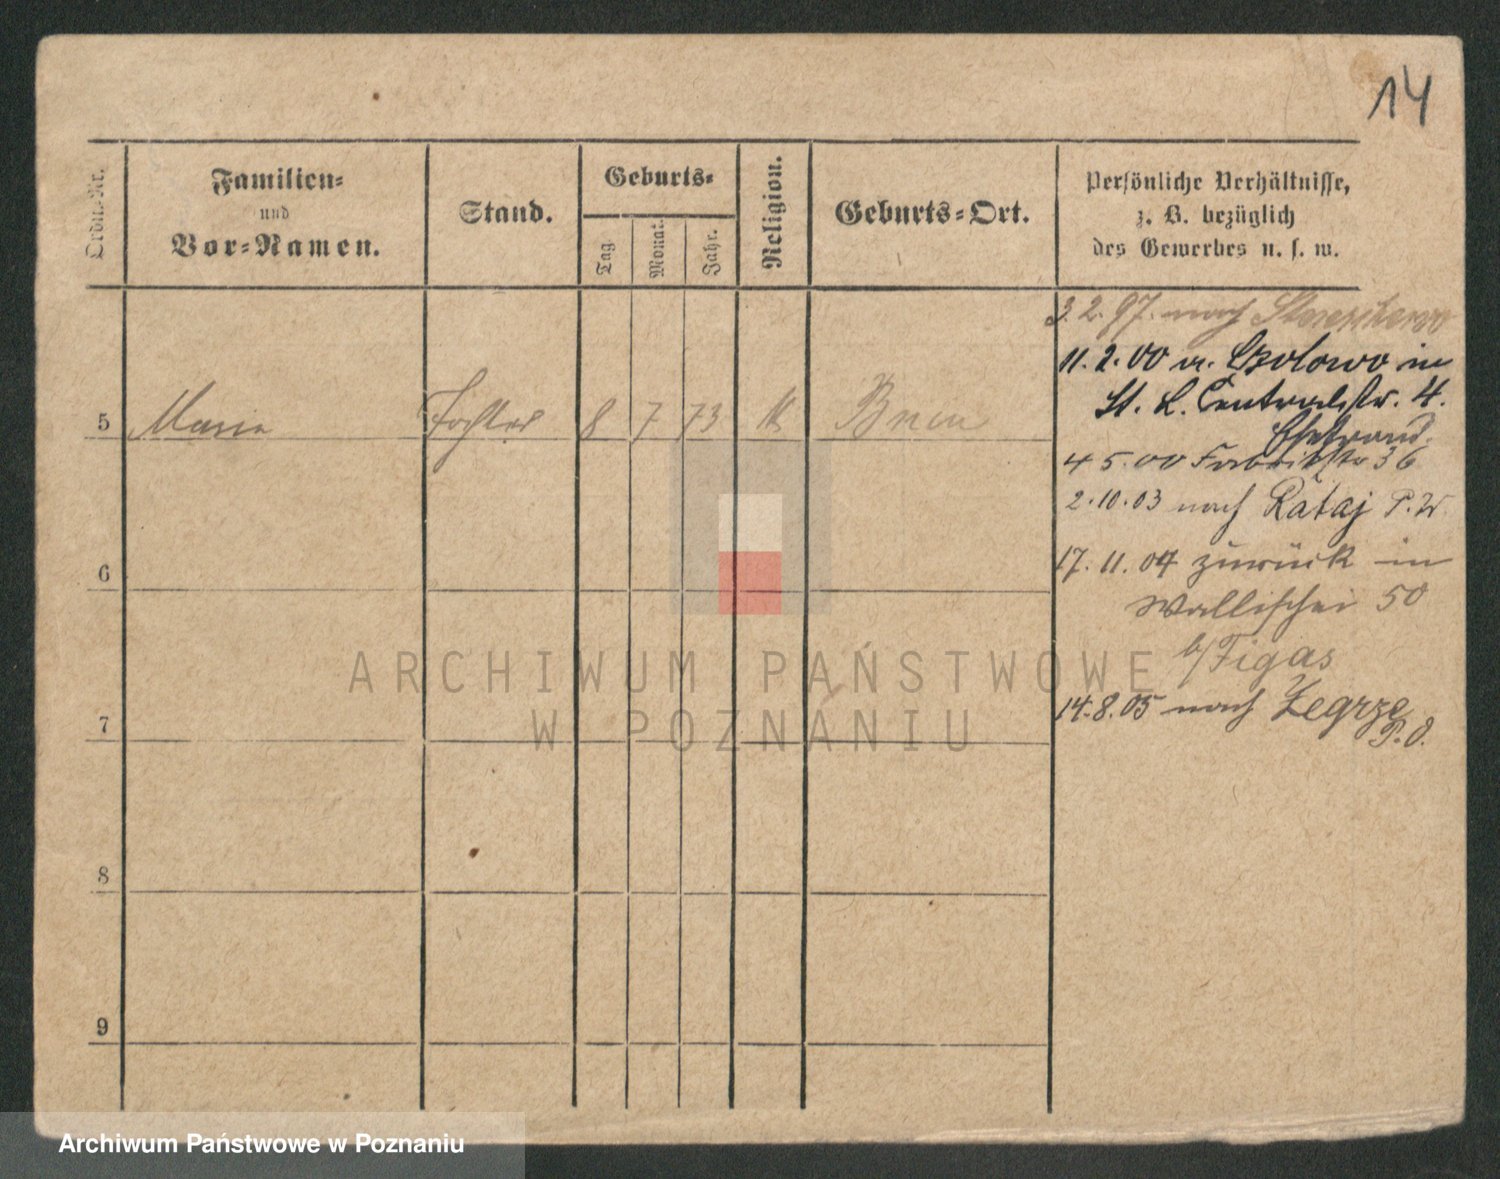 14
Ordn.-Nr.
Familien-
und
Vor-Namen.
Stand.
Geburts-
Tag.
Monat.
Jahr.
Religion.
Geburts-Ort.
Persönliche Verhältnisse,
z. B. bezüglich
des Gewerbes u. s. w.
3.2.97. nach
11.2.00 v. in
St. L. Centralstr. 4.
Ehefrau
5 Maria Tochter 8 7 73 K
4 5.00 Fabrikstr 36
2.10.03 nach Rataj P.W.
6
17.11.04 zurück in
Wallischei 50
b/Figas
7
14.8.05 nach Zegrze
P.O.
8
9
ARCHIWUM PAŃSTWOWE
W POZNANIU
Archiwum Państwowe w Poznaniu